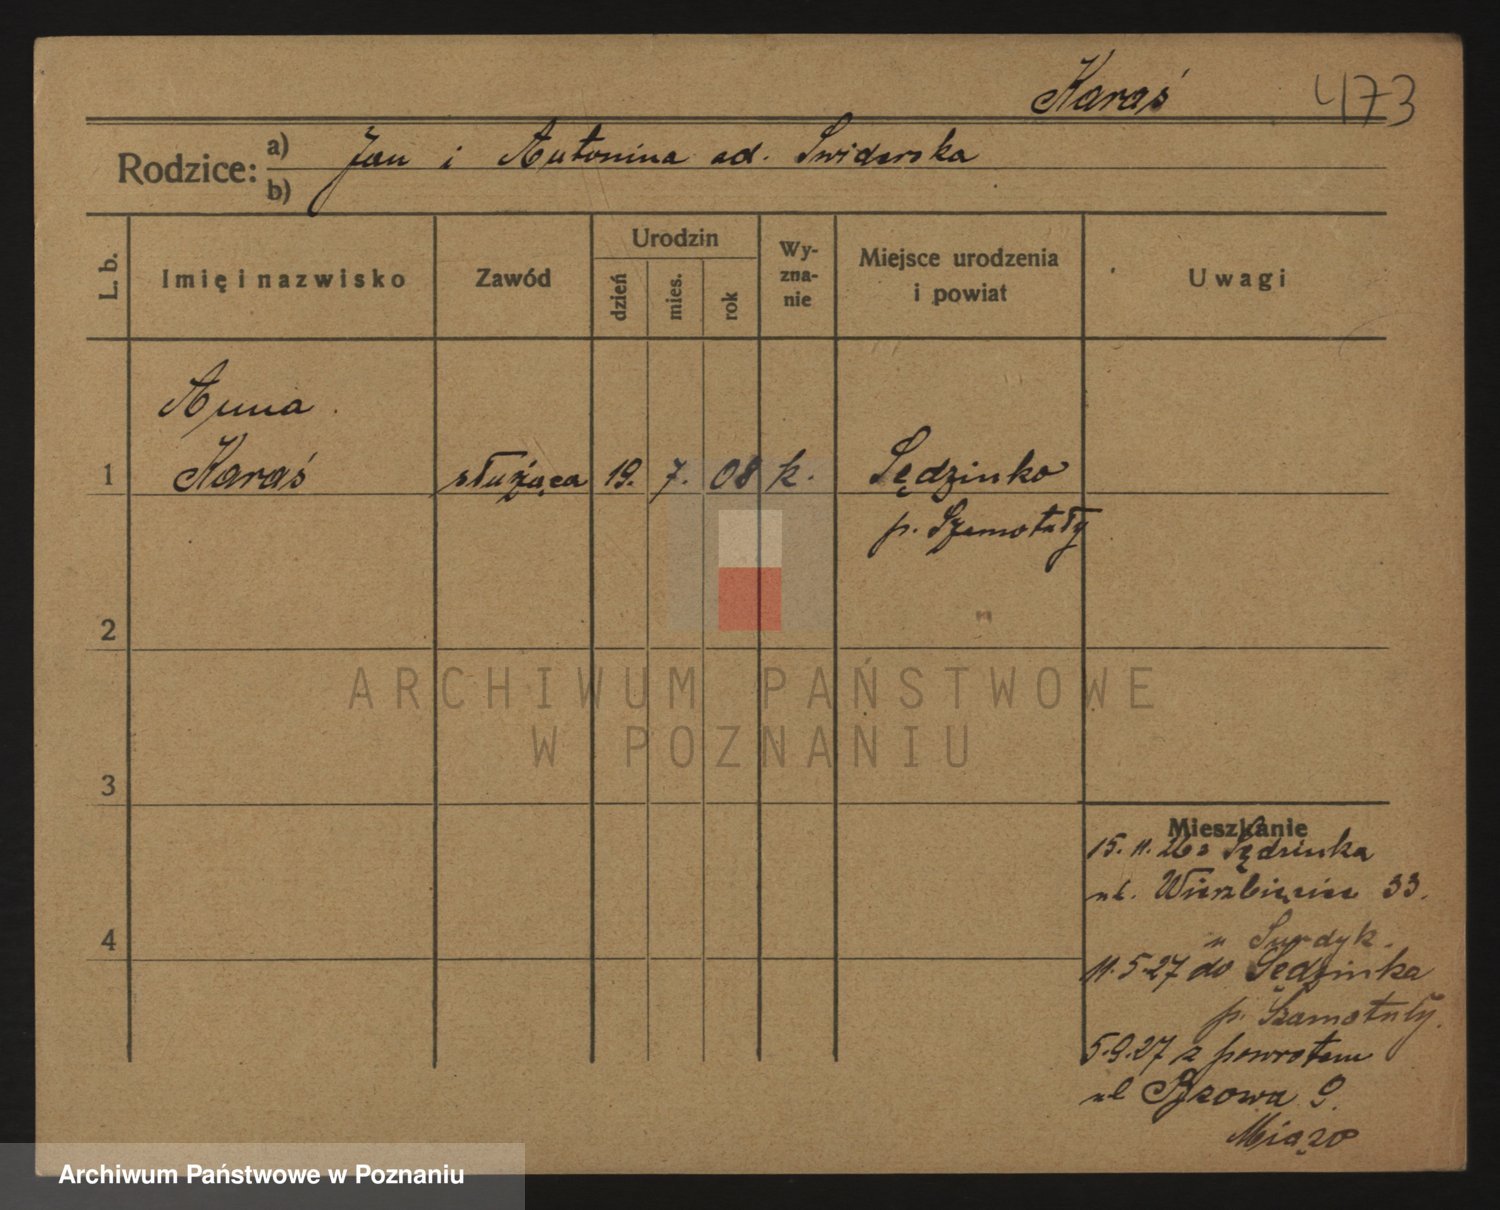 Karaś 473
Rodzice: a) Jan i Antonina od. Swiderska
b)
L. b. Imię i nazwisko Zawód Urodzin dzień mies. rok Wy-zna-nie Miejsce urodzenia i powiat Uwagi
Anna
1 Karaś służąca 19. 7. 08 k. Sędzinko
p. Szamotuły
2
ARCHIWUM PAŃSTWOWE
W POZNANIU
3
Mieszkanie
15. 11. 26 z Sędzinka
ul. Wierzbięcice 33.
4
u Surdyk.
11.5.27 do Sędzinka
p. Szamotuły.
5.9.27 z powrotem
ul 9.
Archiwum Państwowe w Poznaniu